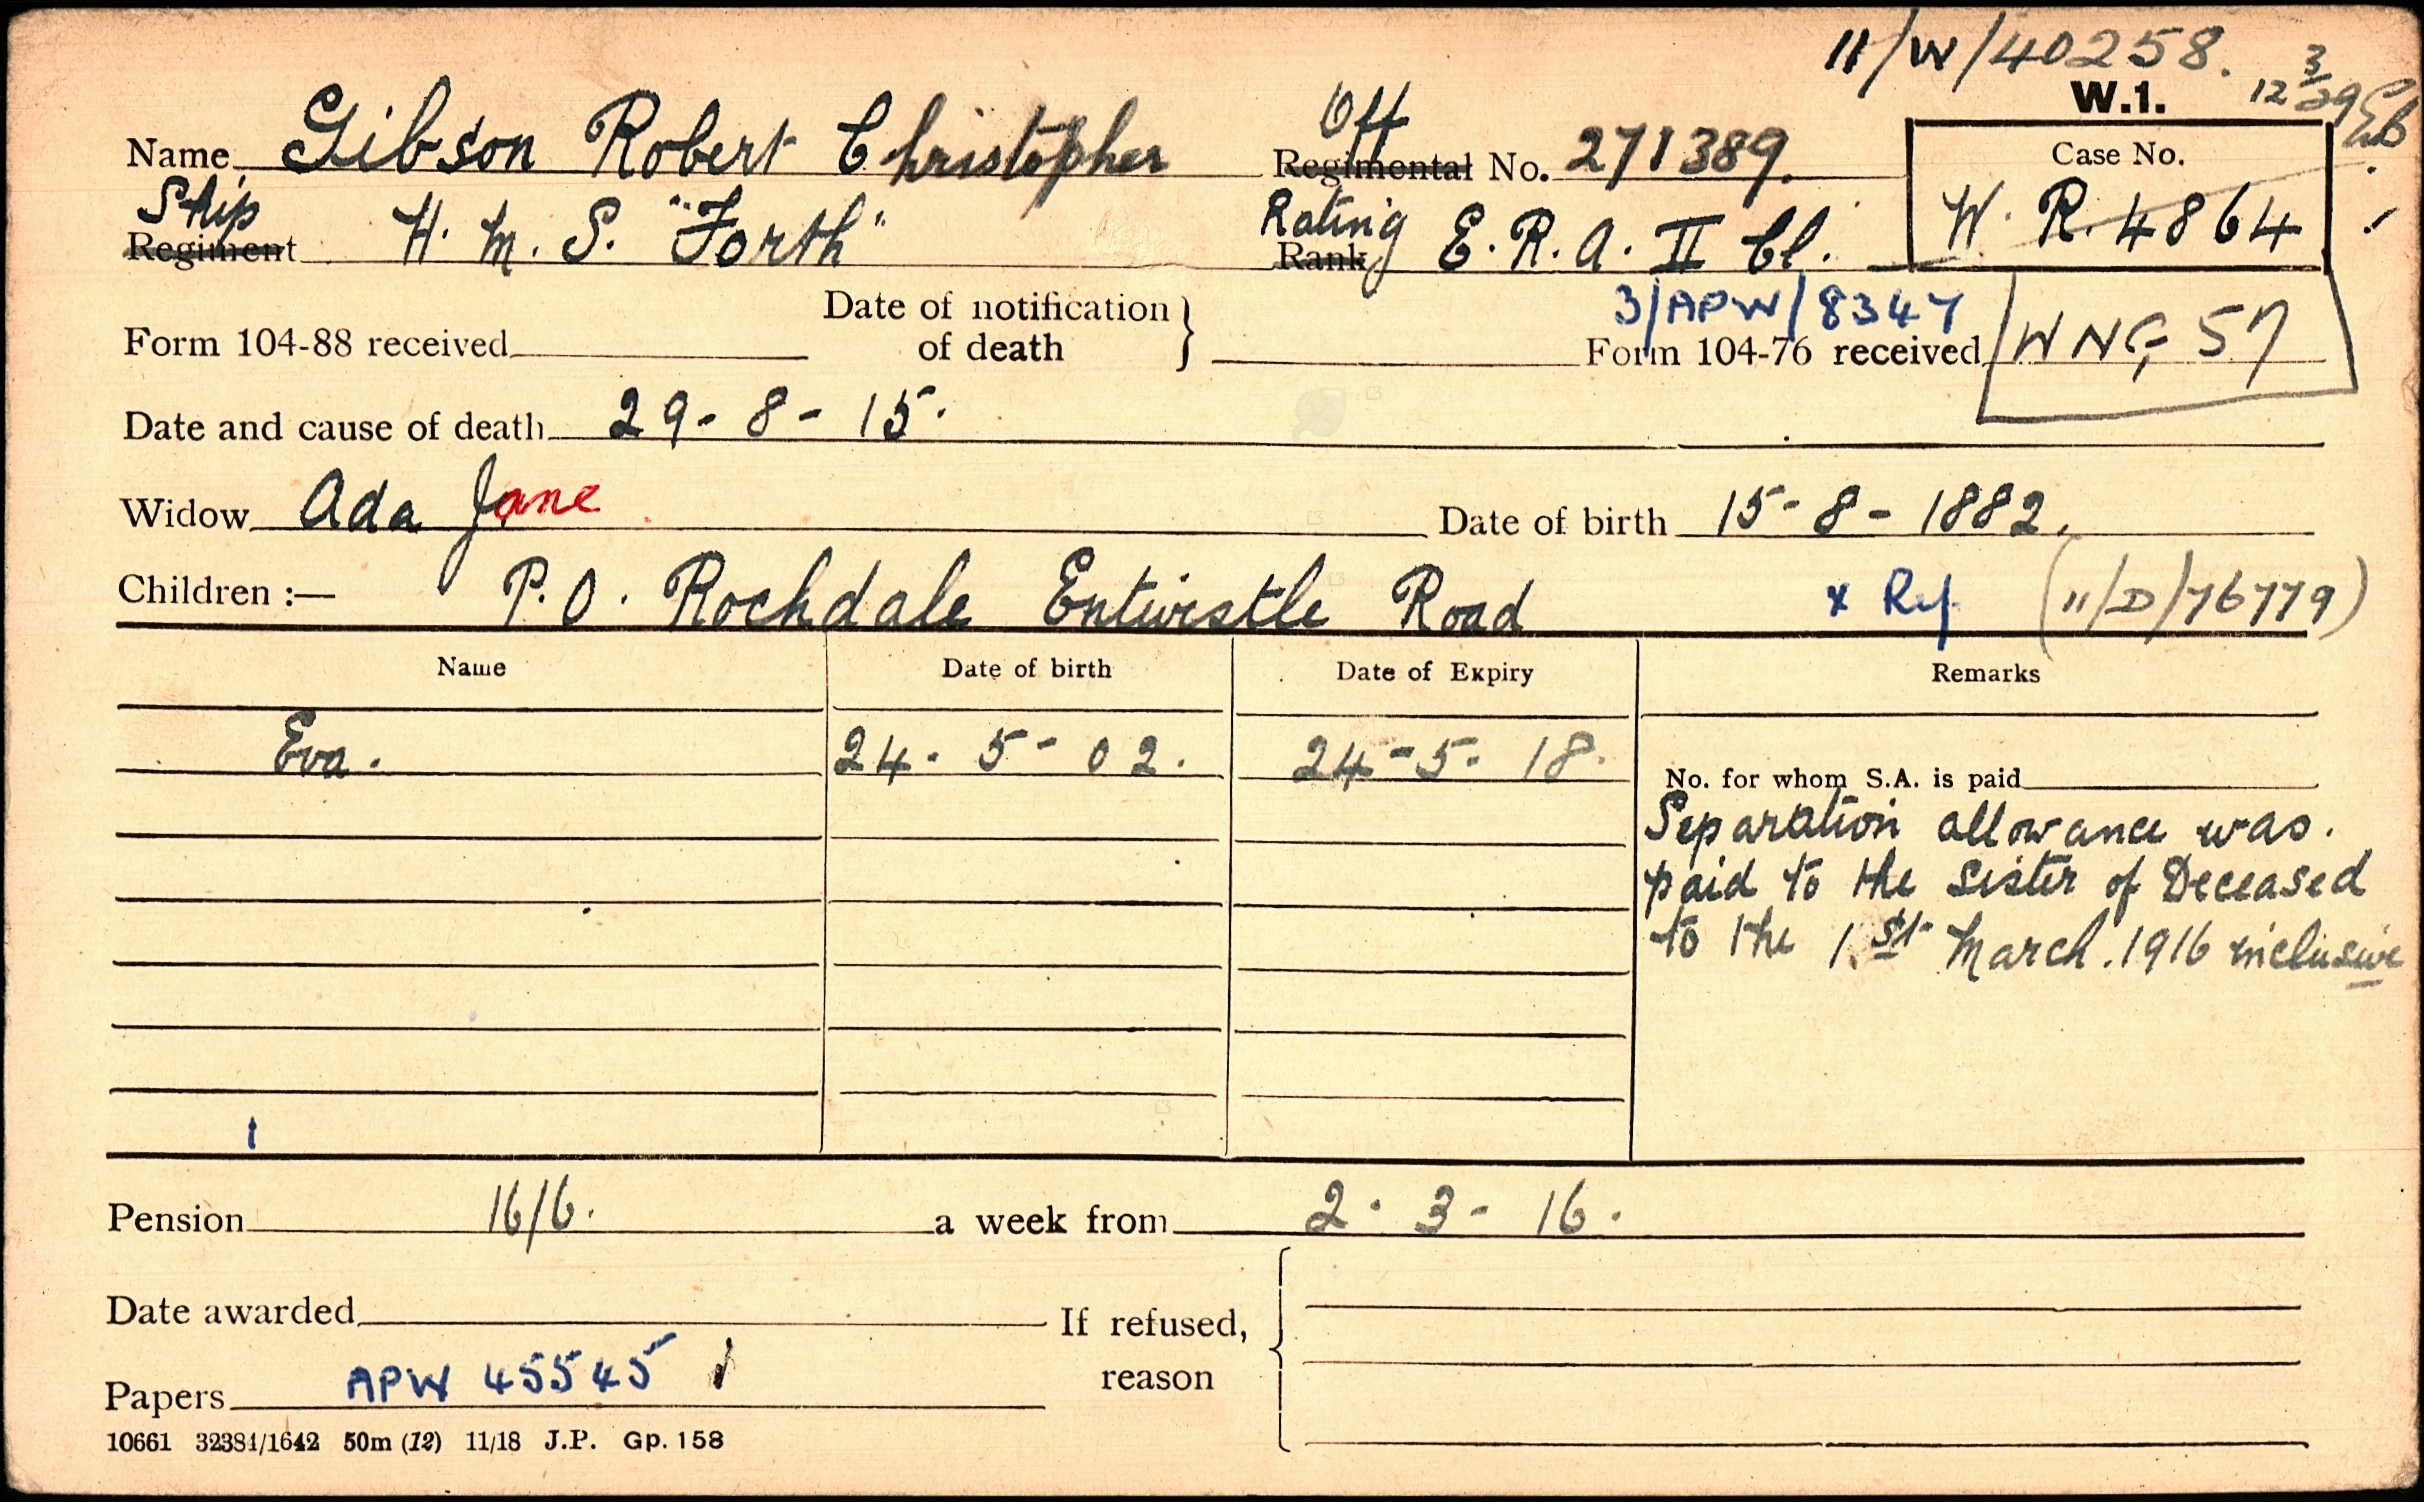 11/W/40258.
W.1. 12 3/29
Name Gibson Robert Christopher Off Regimental No. 271389. Case No.
Ship Regiment H.M.S. "Forth" Rating Rank E.R.A. II Cl. W.R. 4864
3/APW/8347
Form 104-88 received Date of notification of death } Form 104-76 received WNG 57
Date and cause of death 29-8-15.
Widow Ada Jane Date of birth 15-8-1882.
Children :— P.O. Rochdale Entwistle Road x Ref (11/D/76779)
Name Date of birth Date of Expiry Remarks
Eva. 24-5-02. 24-5-18. No. for whom S.A. is paid
Separation allowance was.
paid to the sister of Deceased
to the 1st March. 1916 inclusive
1
Pension 16/6. a week from 2-3-16.
Date awarded If refused,
reason
Papers APW 45545
10661 32384/1642 50m (12) 11/18 J.P. Gp. 158